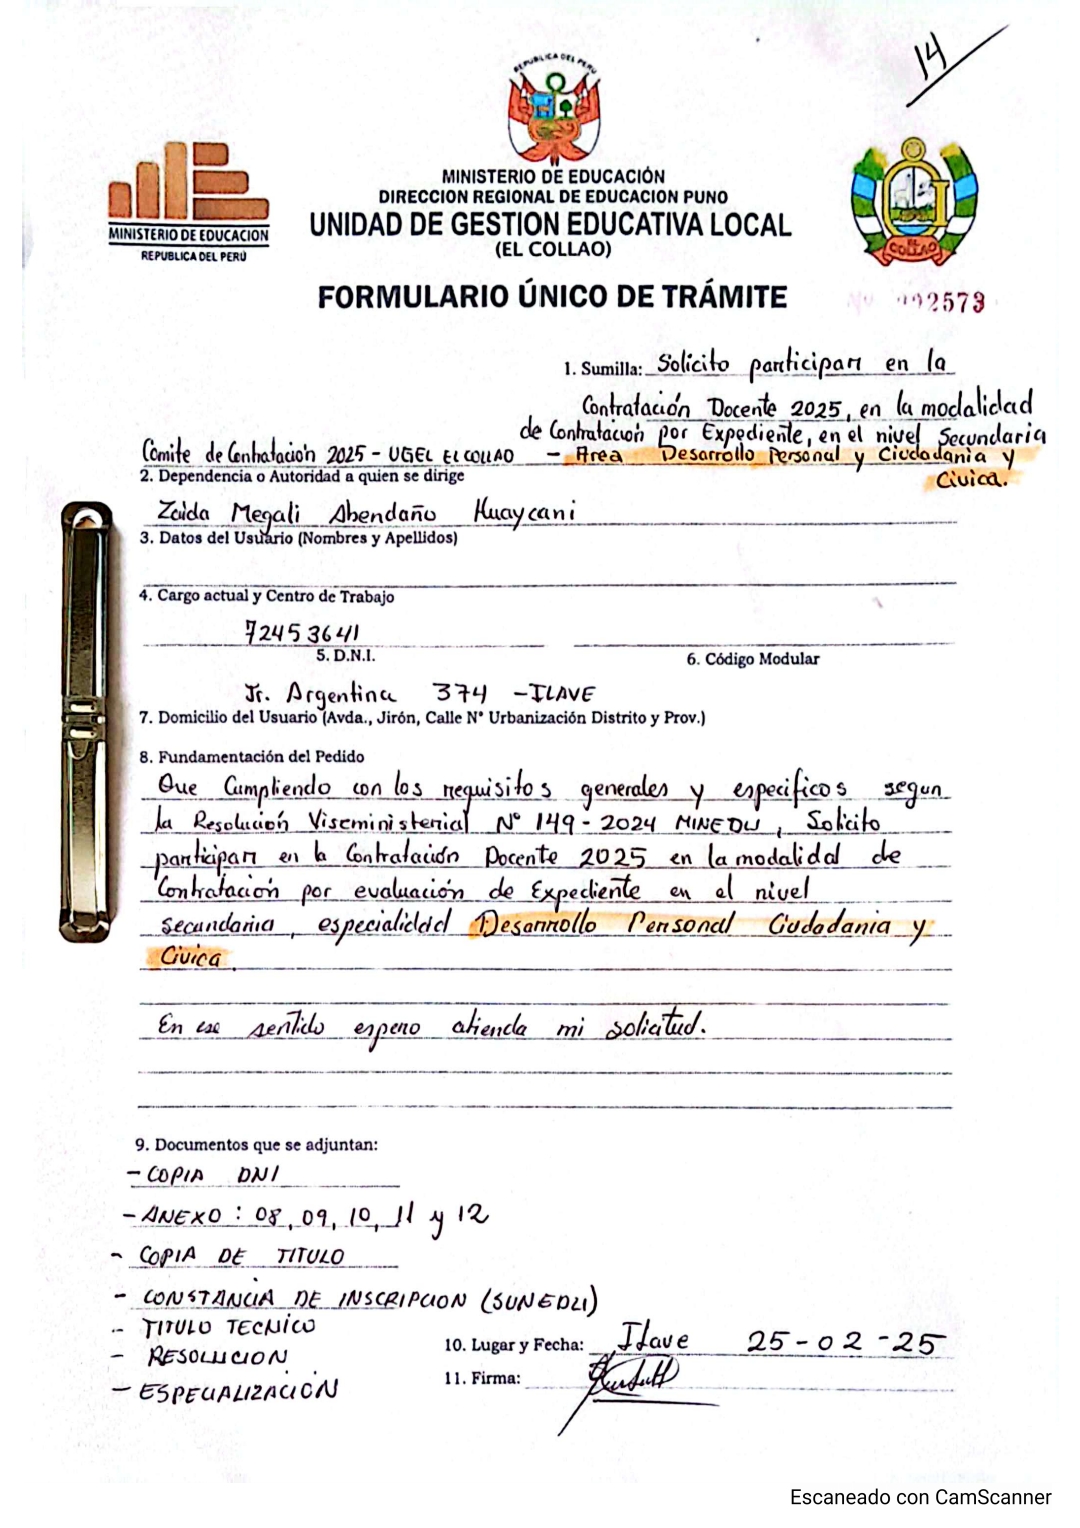 14
REPUBLICA DEL PERU
MINISTERIO DE EDUCACIÓN
DIRECCION REGIONAL DE EDUCACION PUNO
UNIDAD DE GESTION EDUCATIVA LOCAL
(EL COLLAO)
MINISTERIO DE EDUCACION
REPUBLICA DEL PERÚ
EL COLLAO
FORMULARIO ÚNICO DE TRÁMITE
2573
1. Sumilla: Solicito participar en la
Contratación Docente 2025, en la modalidad
de Contratación por Expediente, en el nivel Secundaria
Comite de Contratación 2025 - UGEL EL COLLAO - Area Desarrollo Personal y Ciudadania y
Civica.
2. Dependencia o Autoridad a quien se dirige
Zaida Megali Abendaño Huaycani
3. Datos del Usuario (Nombres y Apellidos)
4. Cargo actual y Centro de Trabajo
72453641
5. D.N.I.
6. Código Modular
Jr. Argentina 374 - ILAVE
7. Domicilio del Usuario (Avda., Jirón, Calle N° Urbanización Distrito y Prov.)
8. Fundamentación del Pedido
Que Cumpliendo con los requisitos generales y especificos segun
la Resolución Viseministerial N° 149 - 2024 MINEDU, Solicito
participar en la Contratación Docente 2025 en la modalidad de
Contratación por evaluación de Expediente en el nivel
secundaria, especialidad Desarrollo Personal Ciudadania y
Civica
En ese sentido espero atienda mi solicitud.
9. Documentos que se adjuntan:
- COPIA DNI
- ANEXO : 08, 09, 10, 11 y 12
- COPIA DE TITULO
- CONSTANCIA DE INSCRIPCION (SUNEDU)
- TITULO TECNICO
- RESOLUCION
- ESPECIALIZACIÓN
10. Lugar y Fecha: Ilave 25-02-25
11. Firma:
Escaneado con CamScanner